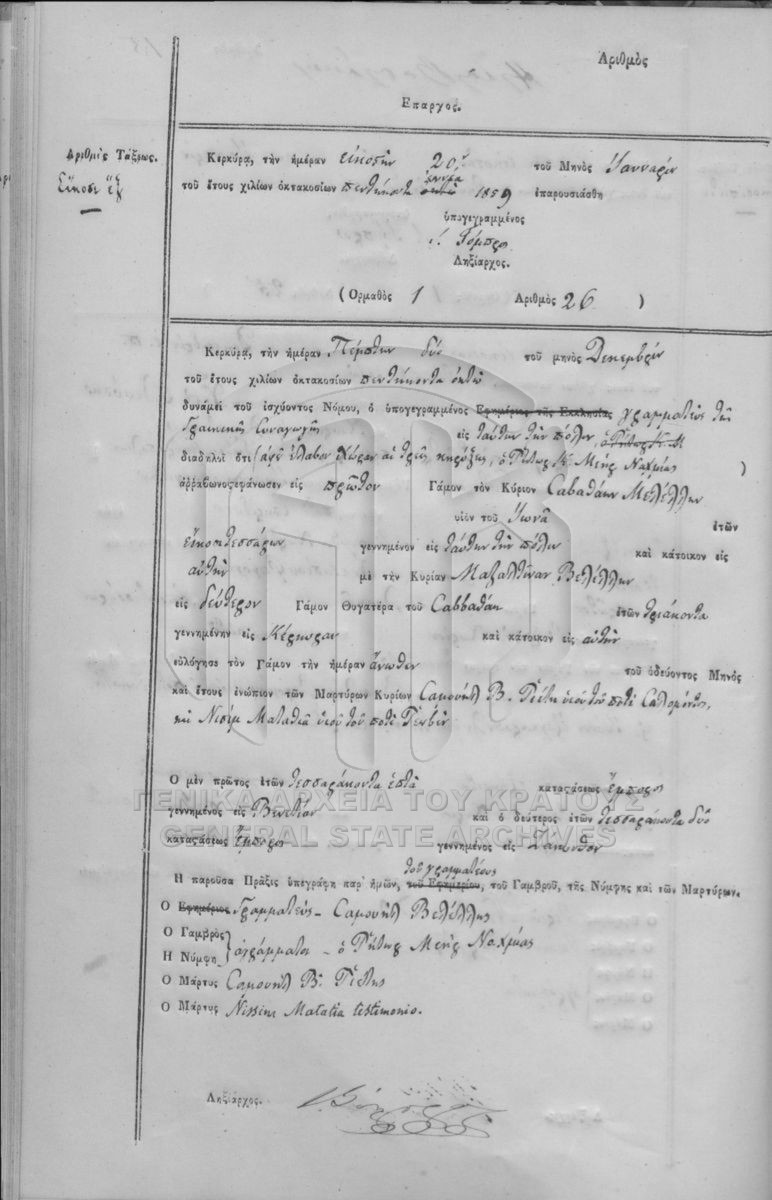 Ἀριθμὸς
Ἔπαρχος.
Ἀριθμὸς Τάξεως.
Εἴκοσι ἕξ
Κερκύρᾳ, τὴν ἡμέραν εἰκοστὴν 20 τοῦ Μηνὸς Ἰανναρίου
ἐννέα
τοῦ ἔτους χιλίων ὀκτακοσίων πεντήκοντα ὀκτὼ 1859 ἐπαρουσιάσθη
ὑπογεγραμμένος
Ληξίαρχος.
(Ὁρμαθὸς 1 Ἀριθμὸς 26 )
Κερκύρᾳ, τὴν ἡμέραν Πέμπτην δύο τοῦ μηνὸς Δεκεμβρίου
τοῦ ἔτους χιλίων ὀκτακοσίων πεντήκοντα ὀκτὼ
δυνάμει τοῦ ἰσχύοντος Νόμου, ὁ ὑπογεγραμμένος Ἐφημέριος τῆς Ἐκκλησίας γραμματεὺς τῆς
Γραικικῆς Συναγωγῆς εἰς ταύτην τὴν πόλιν,
διαδηλοῖ ὅτι (ἀφ' ἔλαβον χώραν αἱ τρεῖς κηρύξεις, ὁ Ῥήτωρ Κ. Μεὴρ Ναχμίας )
ἀῤῥαβωνοςεφάνωσεν εἰς πρῶτον Γάμον τὸν Κύριον Σαβαθάκην Βελέλλην
υἱὸν τοῦ Ἰωνᾶ ἐτῶν
εἰκοσιτεσσάρων γεννημένον εἰς ταύτην τὴν πόλιν καὶ κάτοικον εἰς
αὐτὴν μὲ τὴν Κυρίαν Μαζαλτίναν Βελέλλην
εἰς δεύτερον Γάμον Θυγατέρα τοῦ Σαββαθάκη ἐτῶν τριάκοντα
γεννημένην εἰς Κέρκυραν καὶ κάτοικον εἰς αὐτὴν
εὐλόγησε τὸν Γάμον τὴν ἡμέραν ἄνωθεν τοῦ ὁδεύοντος Μηνὸς
καὶ ἔτους ἐνώπιον τῶν Μαρτύρων Κυρίων Σαμουὴλ Β. Πέστη υἱοῦ τοῦ ποτὲ Σαλομόντος,
καὶ Νισὶμ Ματαθιᾶ υἱοῦ τοῦ ποτὲ Ῥεβὲν
Ὁ μὲν πρῶτος ἐτῶν τεσσαράκοντα ἑπτὰ καταςάσεως Ἔμπορος
γεννημένος εἰς Βενετίαν καὶ ὁ δεύτερος ἐτῶν τεσσαράκοντα δύο
καταςάσεως Ἔμπορος γεννημένος εἰς Ζάκυνθον
τοῦ γραμματέως
Ἡ παροῦσα Πρᾶξις ὑπεγράφη παρ' ἡμῶν, τοῦ Ἐφημερίου, τοῦ Γαμβροῦ, τῆς Νύμφης καὶ τῶν Μαρτύρων.
Ὁ Ἐφημέριος Γραμματεὺς – Σαμουὴλ Βελέλλης
Ὁ Γαμβρὸς
Ἡ Νύμφη } ἀγράμματοι – ὁ Ῥήτωρ Μεὴρ Ναχμίας
Ὁ Μάρτυς Σαμουὴλ Β. Πέστης
Ὁ Μάρτυς Nissim Matatia testimonio.
Ληξίαρχος.
ΓΕΝΙΚΑ ΑΡΧΕΙΑ ΤΟΥ ΚΡΑΤΟΥΣ
GENERAL STATE ARCHIVES